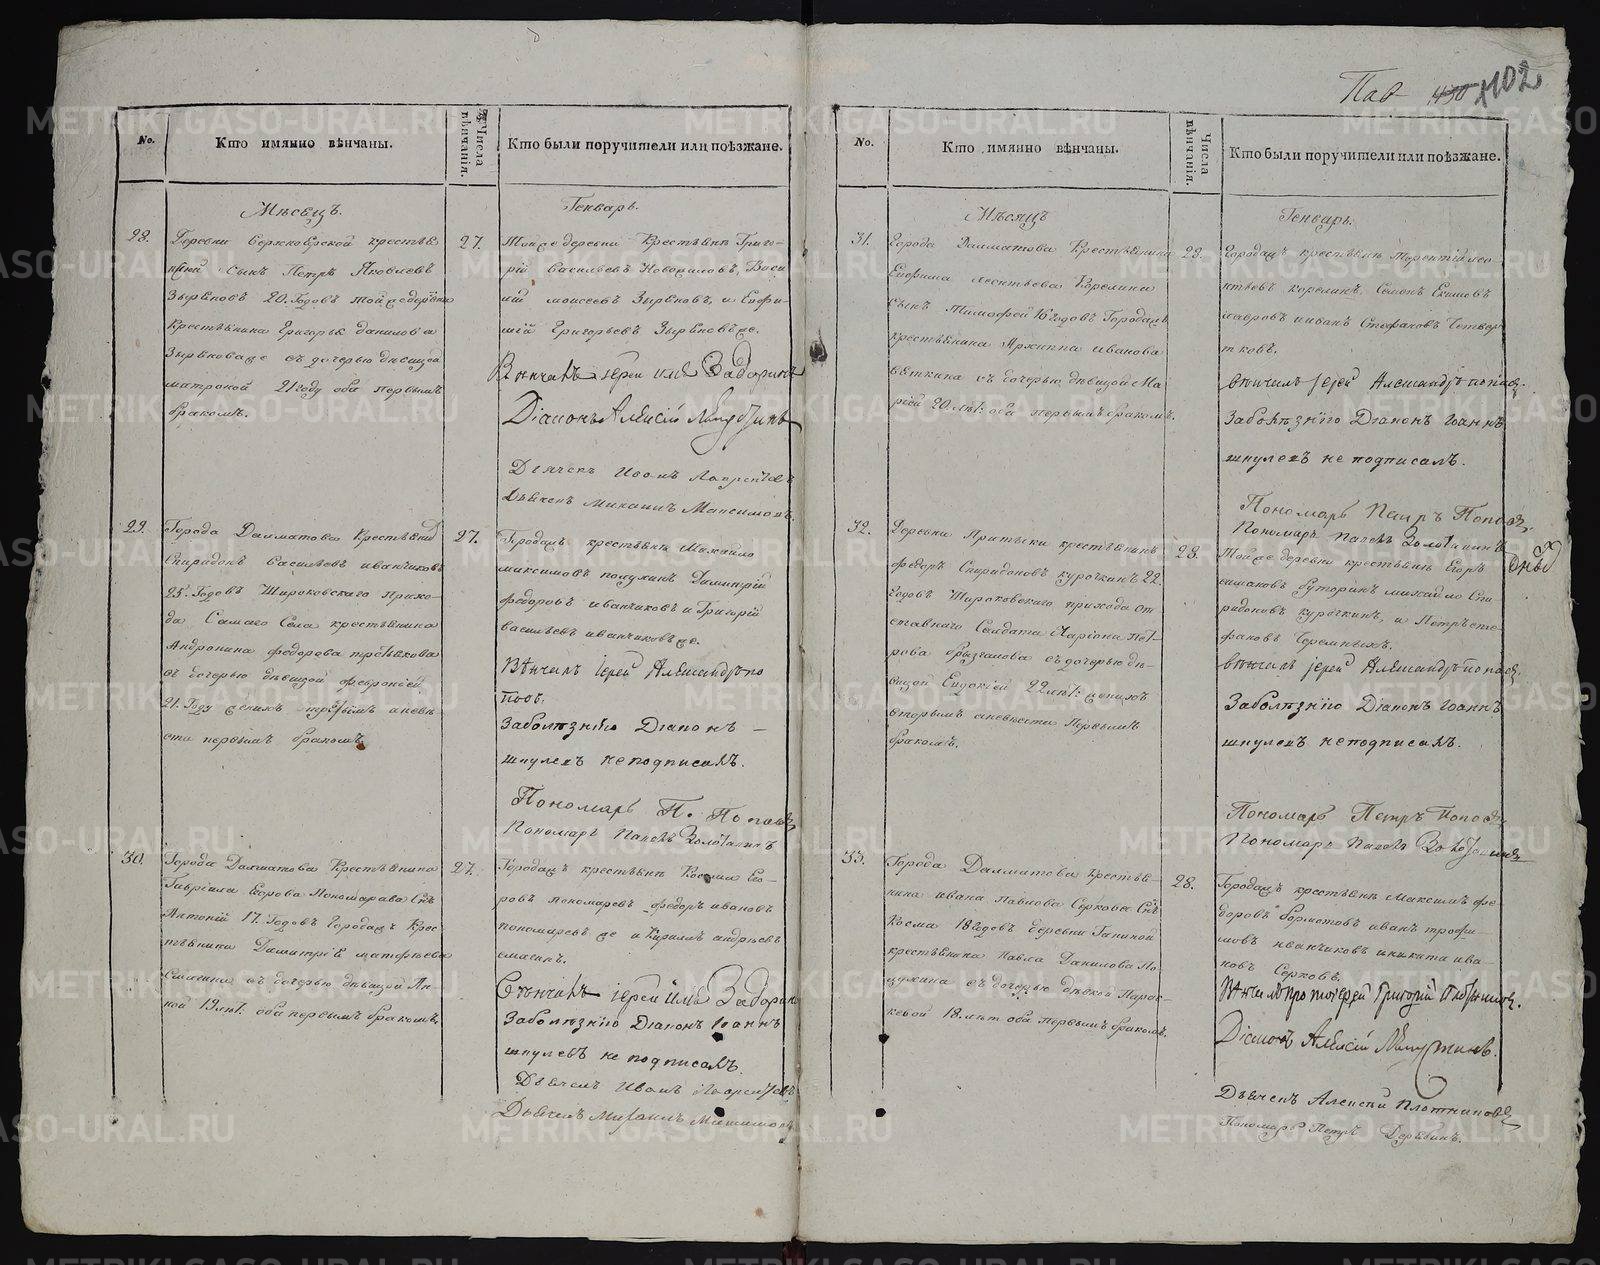 Пав 450 1102
No.
Кто имянно вѣнчаны.
Числа вѣнчанія.
Кто были поручители или поѣзжане.
Мѣсецъ.
Генварь.
28.
Деревни крестья
сынъ Петръ Яковлевъ
Зыряновъ 20. Годовъ тойже деревни
Крестьянина Григорья данилова
Зырянова же съ дочерью дѣвицей
матроной 21 году оба первымъ
бракомъ.
27.
Тойже деревни Крестьяне Григо-
рій Васильевъ Васи
лій моисеевъ Зыряновъ, и Ефи-
мій Григорьевъ Зыряновъ же.
Вѣнчалъ іерей Задоринъ
Діаконъ Алексій
Дьячекъ Иванъ Лаврентьевъ
Дьячекъ Михаилъ Максимовъ
29.
Города Далматова Крестьянинъ
Спиридонъ Васильевъ иванчиковъ
25. Годовъ Широковскаго прихо-
да Самаго Села крестьянина
Андроника федорова третьякова
съ дочерью дѣвицей февроніей
21. Году женихъ третьимъ а невѣ
ста первымъ бракомъ
27.
Городацъ крестьяне Михайло
максимовъ Димитрій
федоровъ иванчиковъ и Григорій
васильевъ иванчиковъ же.
Вѣнчалъ іерей Александръ по
повъ.
Заболѣзнію Діаконъ —
шкулевъ неподписалъ.
Пономарь П. Поповъ
Пономарь Павелъ Золотавинъ
30.
Города Далматова Крестьянина
Гавріила Егорова Пономарева Сынъ
Антоній 17. Годовъ Городацъ Крес
тьянина Димитріе матфеева
съ дочерью дѣвицей Ан-
ной 19 лѣт. оба первымъ бракомъ
27.
Городацъ крестьяне Косма Его-
ровъ пономаревъ федоръ ивановъ
пономаревъ же и Кирилъ андреевъ
Вѣнчалъ іерей Задоринъ
Заболѣзнію Діаконъ Іоаннъ
шкулевъ не подписалъ.
Дьячекъ Иванъ Лаврентьевъ
Дьячекъ Михаилъ Максимовъ
No.
Кто имянно вѣнчаны.
Числа вѣнчанія.
Кто были поручители или поѣзжане.
Мѣсяцъ
Генварь.
31.
Города Далматова Крестьянина
Ефима леонтьева Корелина
сынъ Тимофей 16 годовъ Городацъ
крестьянина Архипа иванова
съ дочерью дѣвицей Ма
рией 20. лѣт: оба первымъ бракомъ.
28.
Городацъ крестьяне Терентій лео-
нтьевъ корелинъ, Семонъ Екимовъ
лавровъ и иванъ Стефановъ Четвер
тковъ.
вѣнчилъ іерей Александръ поповъ.
Заболѣзнію Діаконъ Іоаннъ
шкулевъ не подписалъ.
Пономарь Петръ Поповъ
Пономарь Павелъ Золотавинъ
32.
Деревни Притыки крестьянинъ
федоръ Спиридоновъ курочкинъ 22.
Годовъ Широковскаго прихода от
ставнаго Солдата Иларіона Пет-
рова съ дочерью дѣ-
вицей Евдокіей 22 лѣт: женихъ
вторымъ а невеста Первымъ
бракомъ.
28.
Тойже деревни крестьяне Егоръ
михайло Спи-
ридоновъ курочкинъ, и Петръ сте-
фановъ Черемныхъ.
вѣнчилъ іерей Александръ поповъ.
Заболѣзнію Діаконъ Іоаннъ
шкулевъ неподписалъ.
Пономарь Петръ Поповъ
Пономарь Павелъ Золотавинъ
33.
Города Далматова крестья-
нина ивана Павлова Серкова Сынъ
Косма 18 Годовъ деревни Ганиной
крестьянина Павла Данилова По
съ дочерью дѣвкой Парас
кевой 18. лѣт оба первымъ бракомъ.
28.
Городацъ крестьяне Максимъ фе-
доровъ Бормотовъ иванъ трофи-
мовъ иванчиковъ и никита ива-
новъ Серковъ.
Вѣнчилъ протоіерей Григорій
Діаконъ Алексій
Дьячекъ Алексій Плотниковъ
Пономарь Петръ